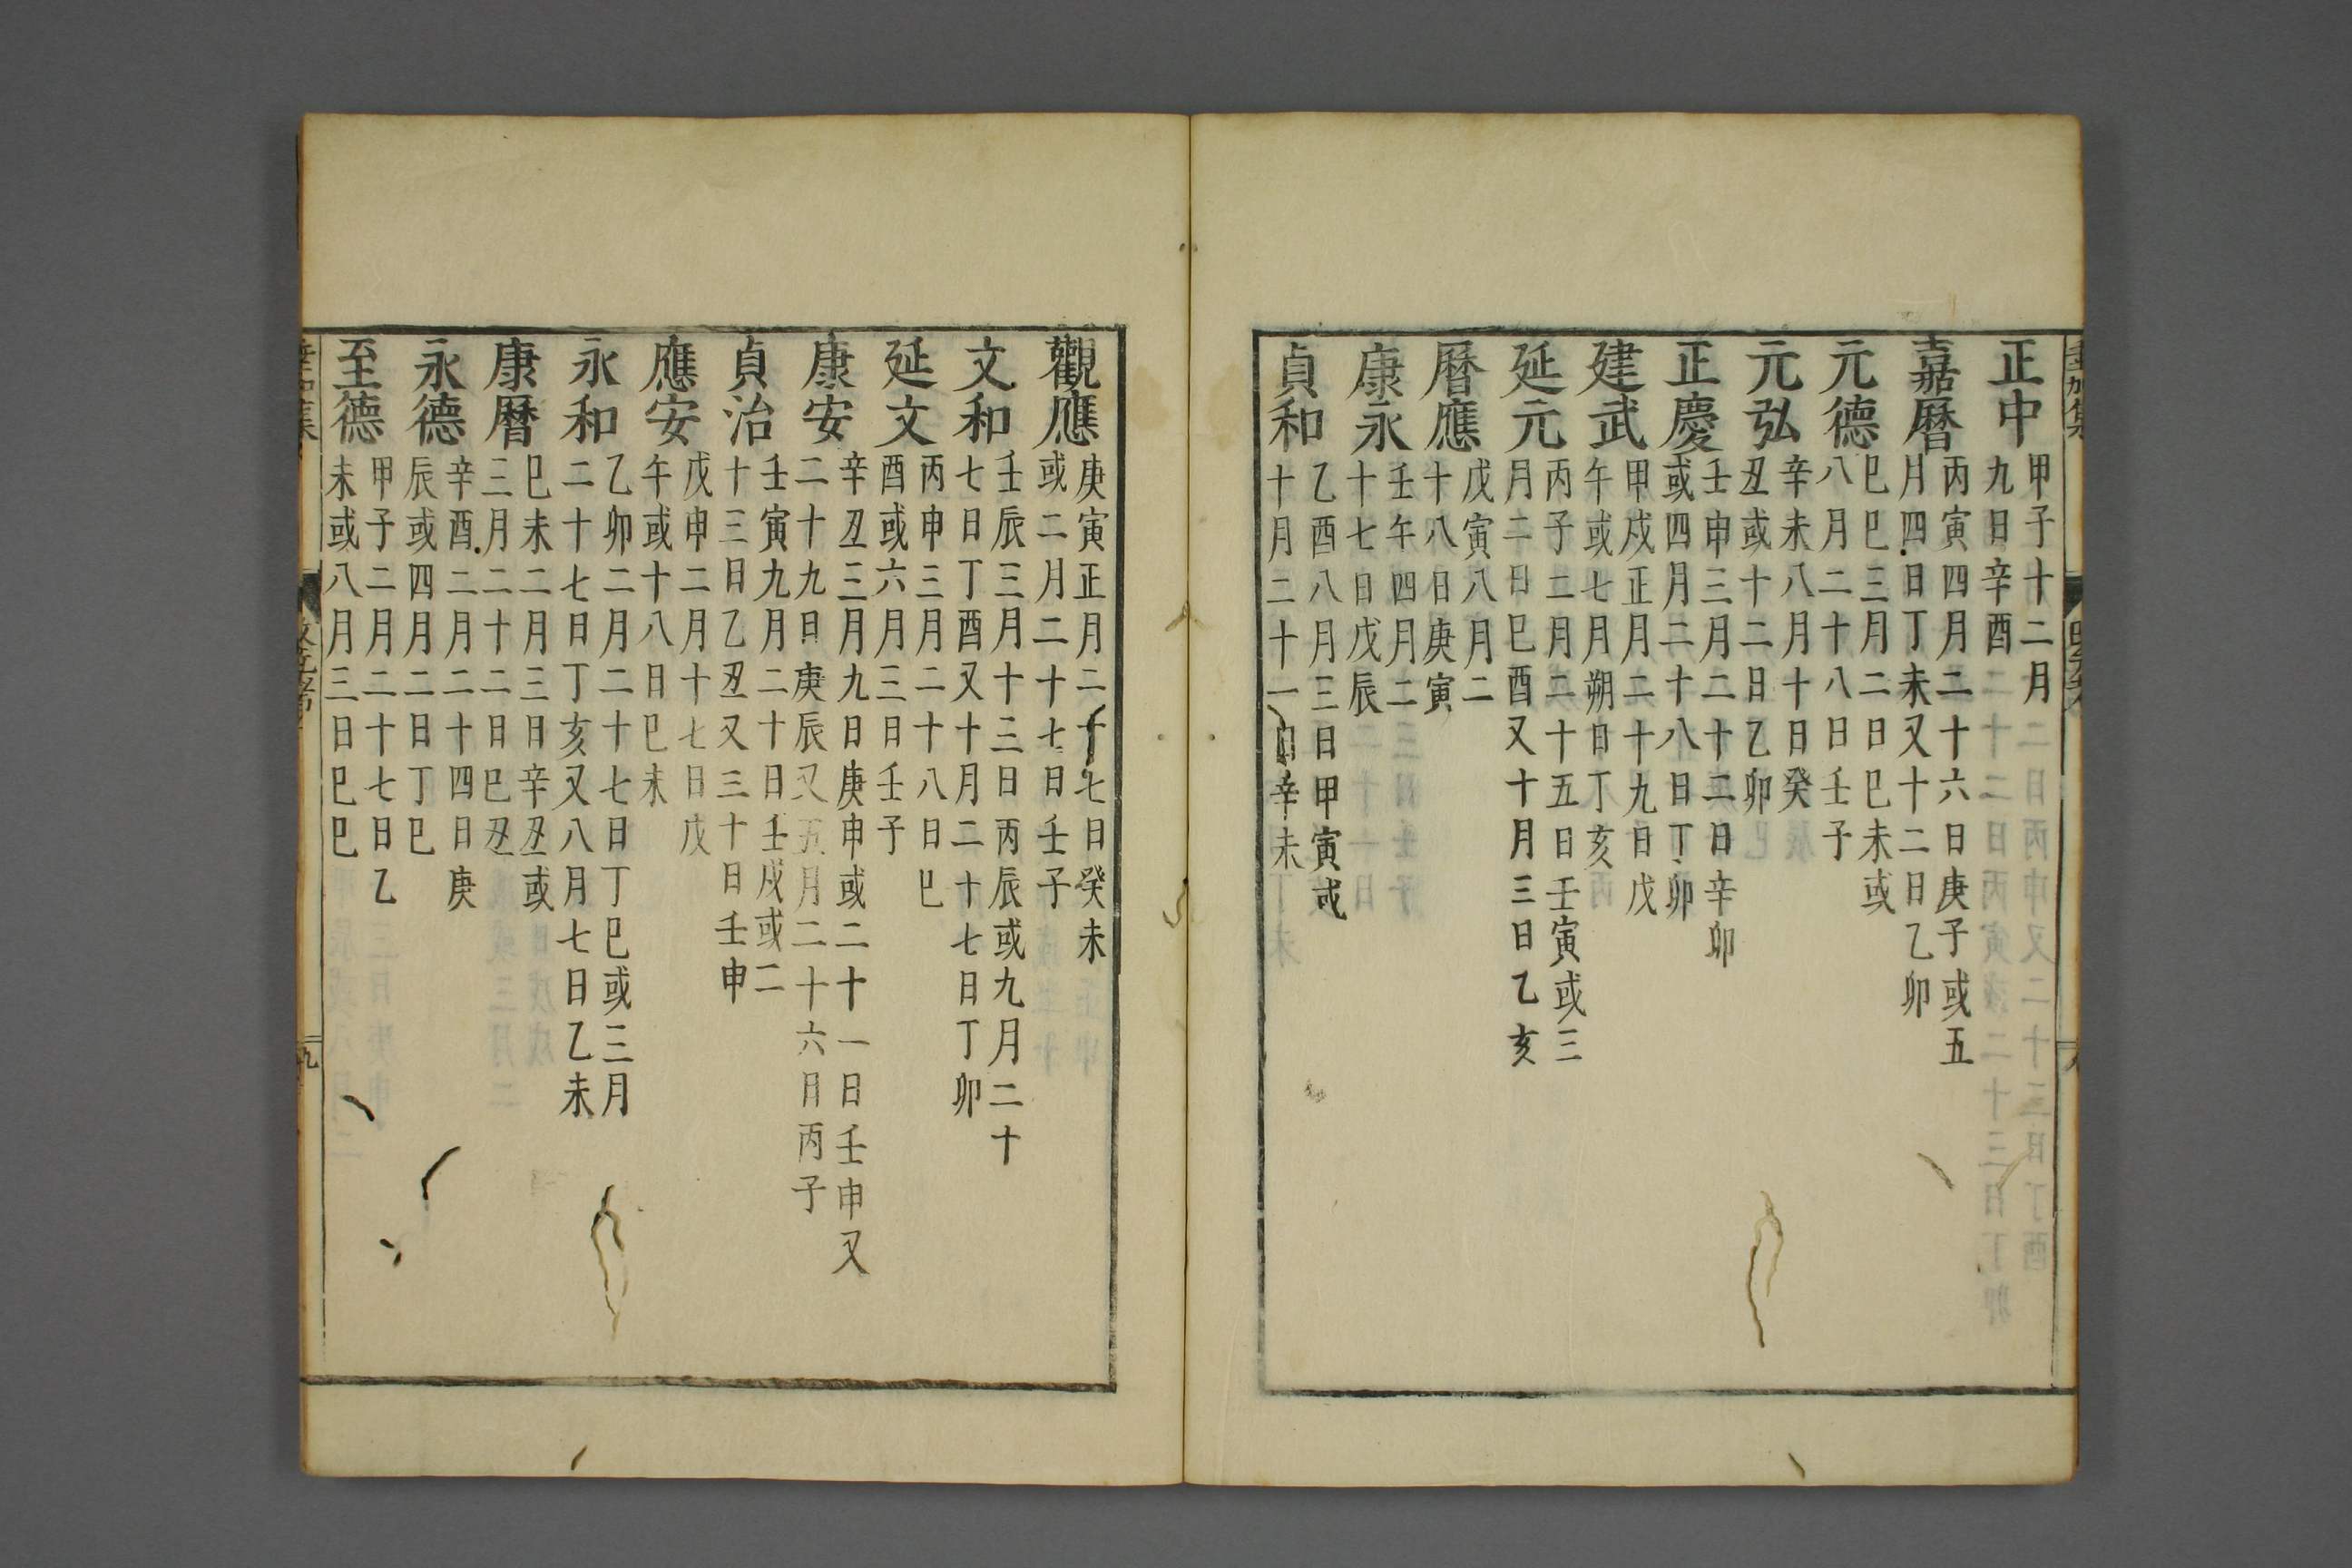 正中 甲子十二月
九日辛酉
嘉曆 丙寅四月二十六日庚子或五
月四日丁未又十二日乙卯
元德 巳巳三月二日巳未或
八月二十八日壬子
元弘 辛未八月十日癸
丑或十二日乙卯
正慶 壬申三月二十二日辛卯
或四月二十八日丁卯
建武 甲戌正月二十九日戊
午或七月朔日丁亥
延元 丙子二月二十五日壬寅或三
月二日巳酉又十月三日乙亥
曆應 戊寅八月二
十八日庚寅
康永 壬午四月二
十七日戊辰
貞和 乙酉八月三日甲寅或
十月二十一日辛未
觀應 庚寅正月二十七日癸未
或二月二十七日壬子
文和 壬辰三月十三日丙辰或九月二十
七日丁酉又十月二十七日丁卯
延文 丙申三月二十八日巳
酉或六月三日壬子
康安 辛丑三月九日庚申或二十一日壬申又
二十九日庚辰又五月二十六日丙子
貞治 壬寅九月二十日壬戌或二
十三日乙丑又三十日壬申
應安 戊申二月十七日戊
午或十八日巳未
永和 乙卯二月二十七日丁巳或三月
二十七日丁亥又八月七日乙未
康曆 巳未二月三日辛丑或
三月二十二日巳丑
永德 辛酉二月二十四日庚
辰或四月二日丁巳
至德 甲子二月二十七日乙
未或八月三日巳巳
九